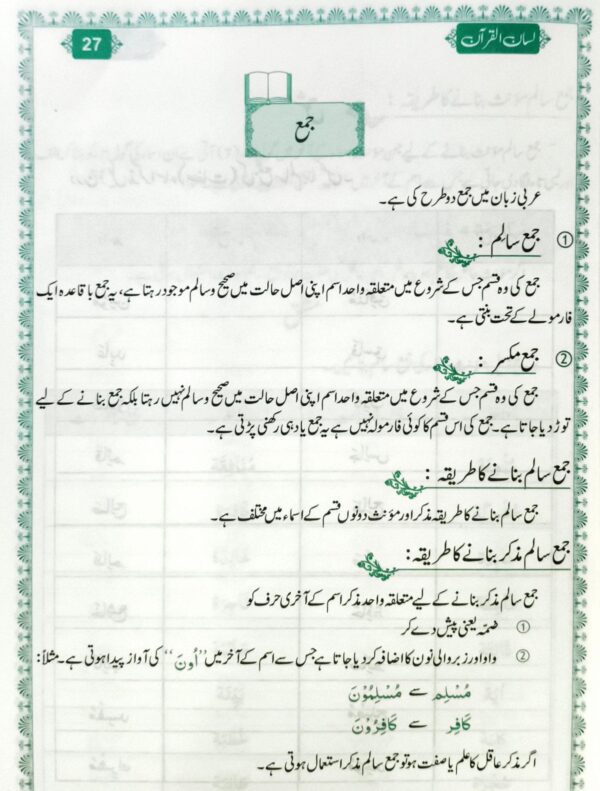 27
لسان القرآن
جمع
عربی زبان میں جمع دو طرح کی ہے۔
① جمع سالِم :
جمع کی وہ قسم جس کے شروع میں متعلقہ واحد اسم اپنی اصل حالت میں صحیح و سالم موجود رہتا ہے، یہ جمع باقاعدہ ایک
فارمولے کے تحت بنتی ہے۔
② جمع مکسر :
جمع کی وہ قسم جس کے شروع میں متعلقہ واحد اسم اپنی اصل حالت میں صحیح و سالم نہیں رہتا بلکہ جمع بنانے کے لیے
توڑ دیا جاتا ہے۔ جمع کی اس قسم کا کوئی فارمولہ نہیں ہے یہ جمع یاد ہی رکھنی پڑتی ہے۔
جمع سالم بنانے کا طریقہ :
جمع سالم بنانے کا طریقہ مذکر اور مؤنث دونوں قسم کے اسماء میں مختلف ہے۔
جمع سالم مذکر بنانے کا طریقہ :
جمع سالم مذکر بنانے کے لیے متعلقہ واحد مذکر اسم کے آخری حرف کو
① ضمّہ یعنی پیش دے کر
② واو اور زبر والی نون کا اضافہ کر دیا جاتا ہے جس سے اسم کے آخر میں "اُونَ" کی آواز پیدا ہوتی ہے۔ مثلاً:
مُسْلِم سے مُسْلِمُوْنَ
كَافِر سے كَافِرُوْنَ
اگر مذکر عاقل کا علم یا صفت ہو تو جمع سالم مذکر استعمال ہوتی ہے۔